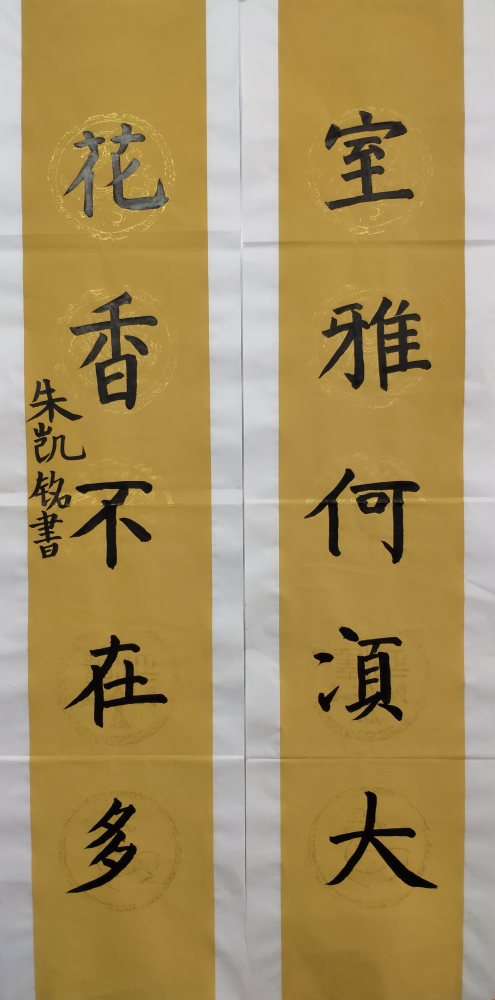 室雅何湏大
花香不在多
朱凯铭書